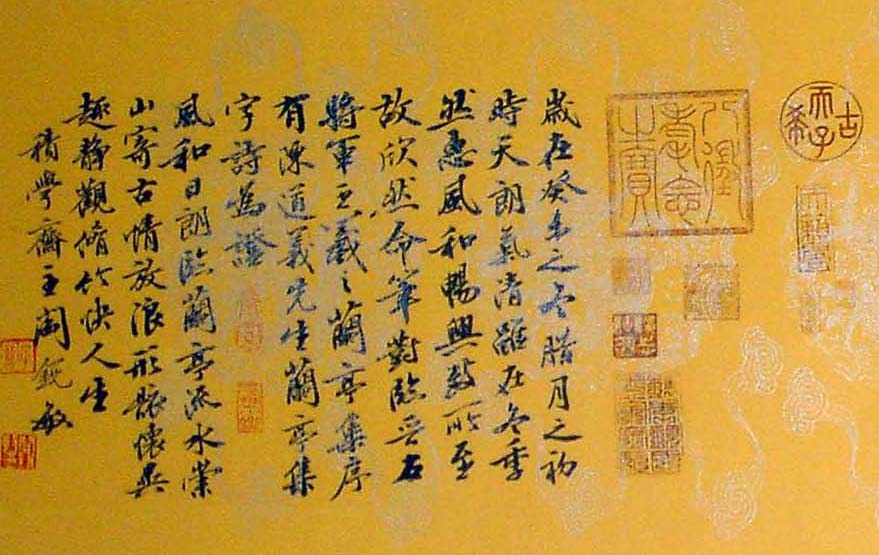 古希天子
八徵耄念之寶
歲在癸未之冬臘月之初
時天朗氣清雖在冬季
然惠風和暢興致所至
故欣然命筆對臨晉右
將軍王羲之蘭亭集序
有陳道義先生蘭亭集
字詩為證
風和日朗臨蘭亭流水縈
山寄古情放浪形骸懷異
趣靜觀脩竹快人生
積學齋主周銳敏